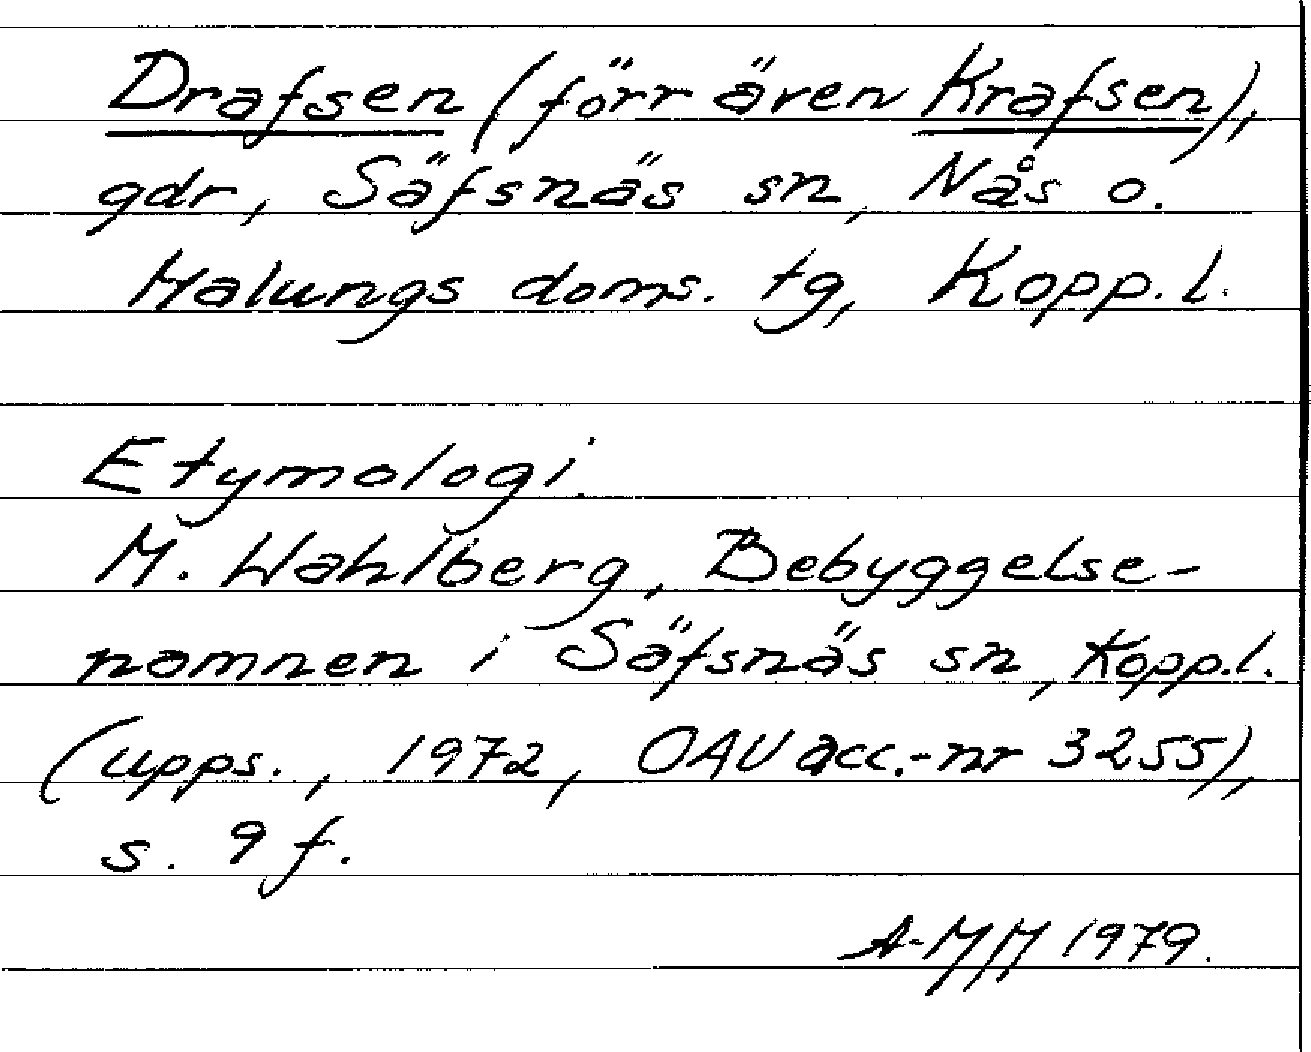 Drafsen (förr även Krafsen),
gdr, Säfsnäs sn, Nås o.
Malungs doms. tg, Kopp. l.
Etymologi.
M. Wahlberg, Bebyggelse-
namnen i Säfsnäs sn, Kopp.l.
(upps., 1972, OAU acc.-nr 3255),
s. 9 f.
A-MM 1979.